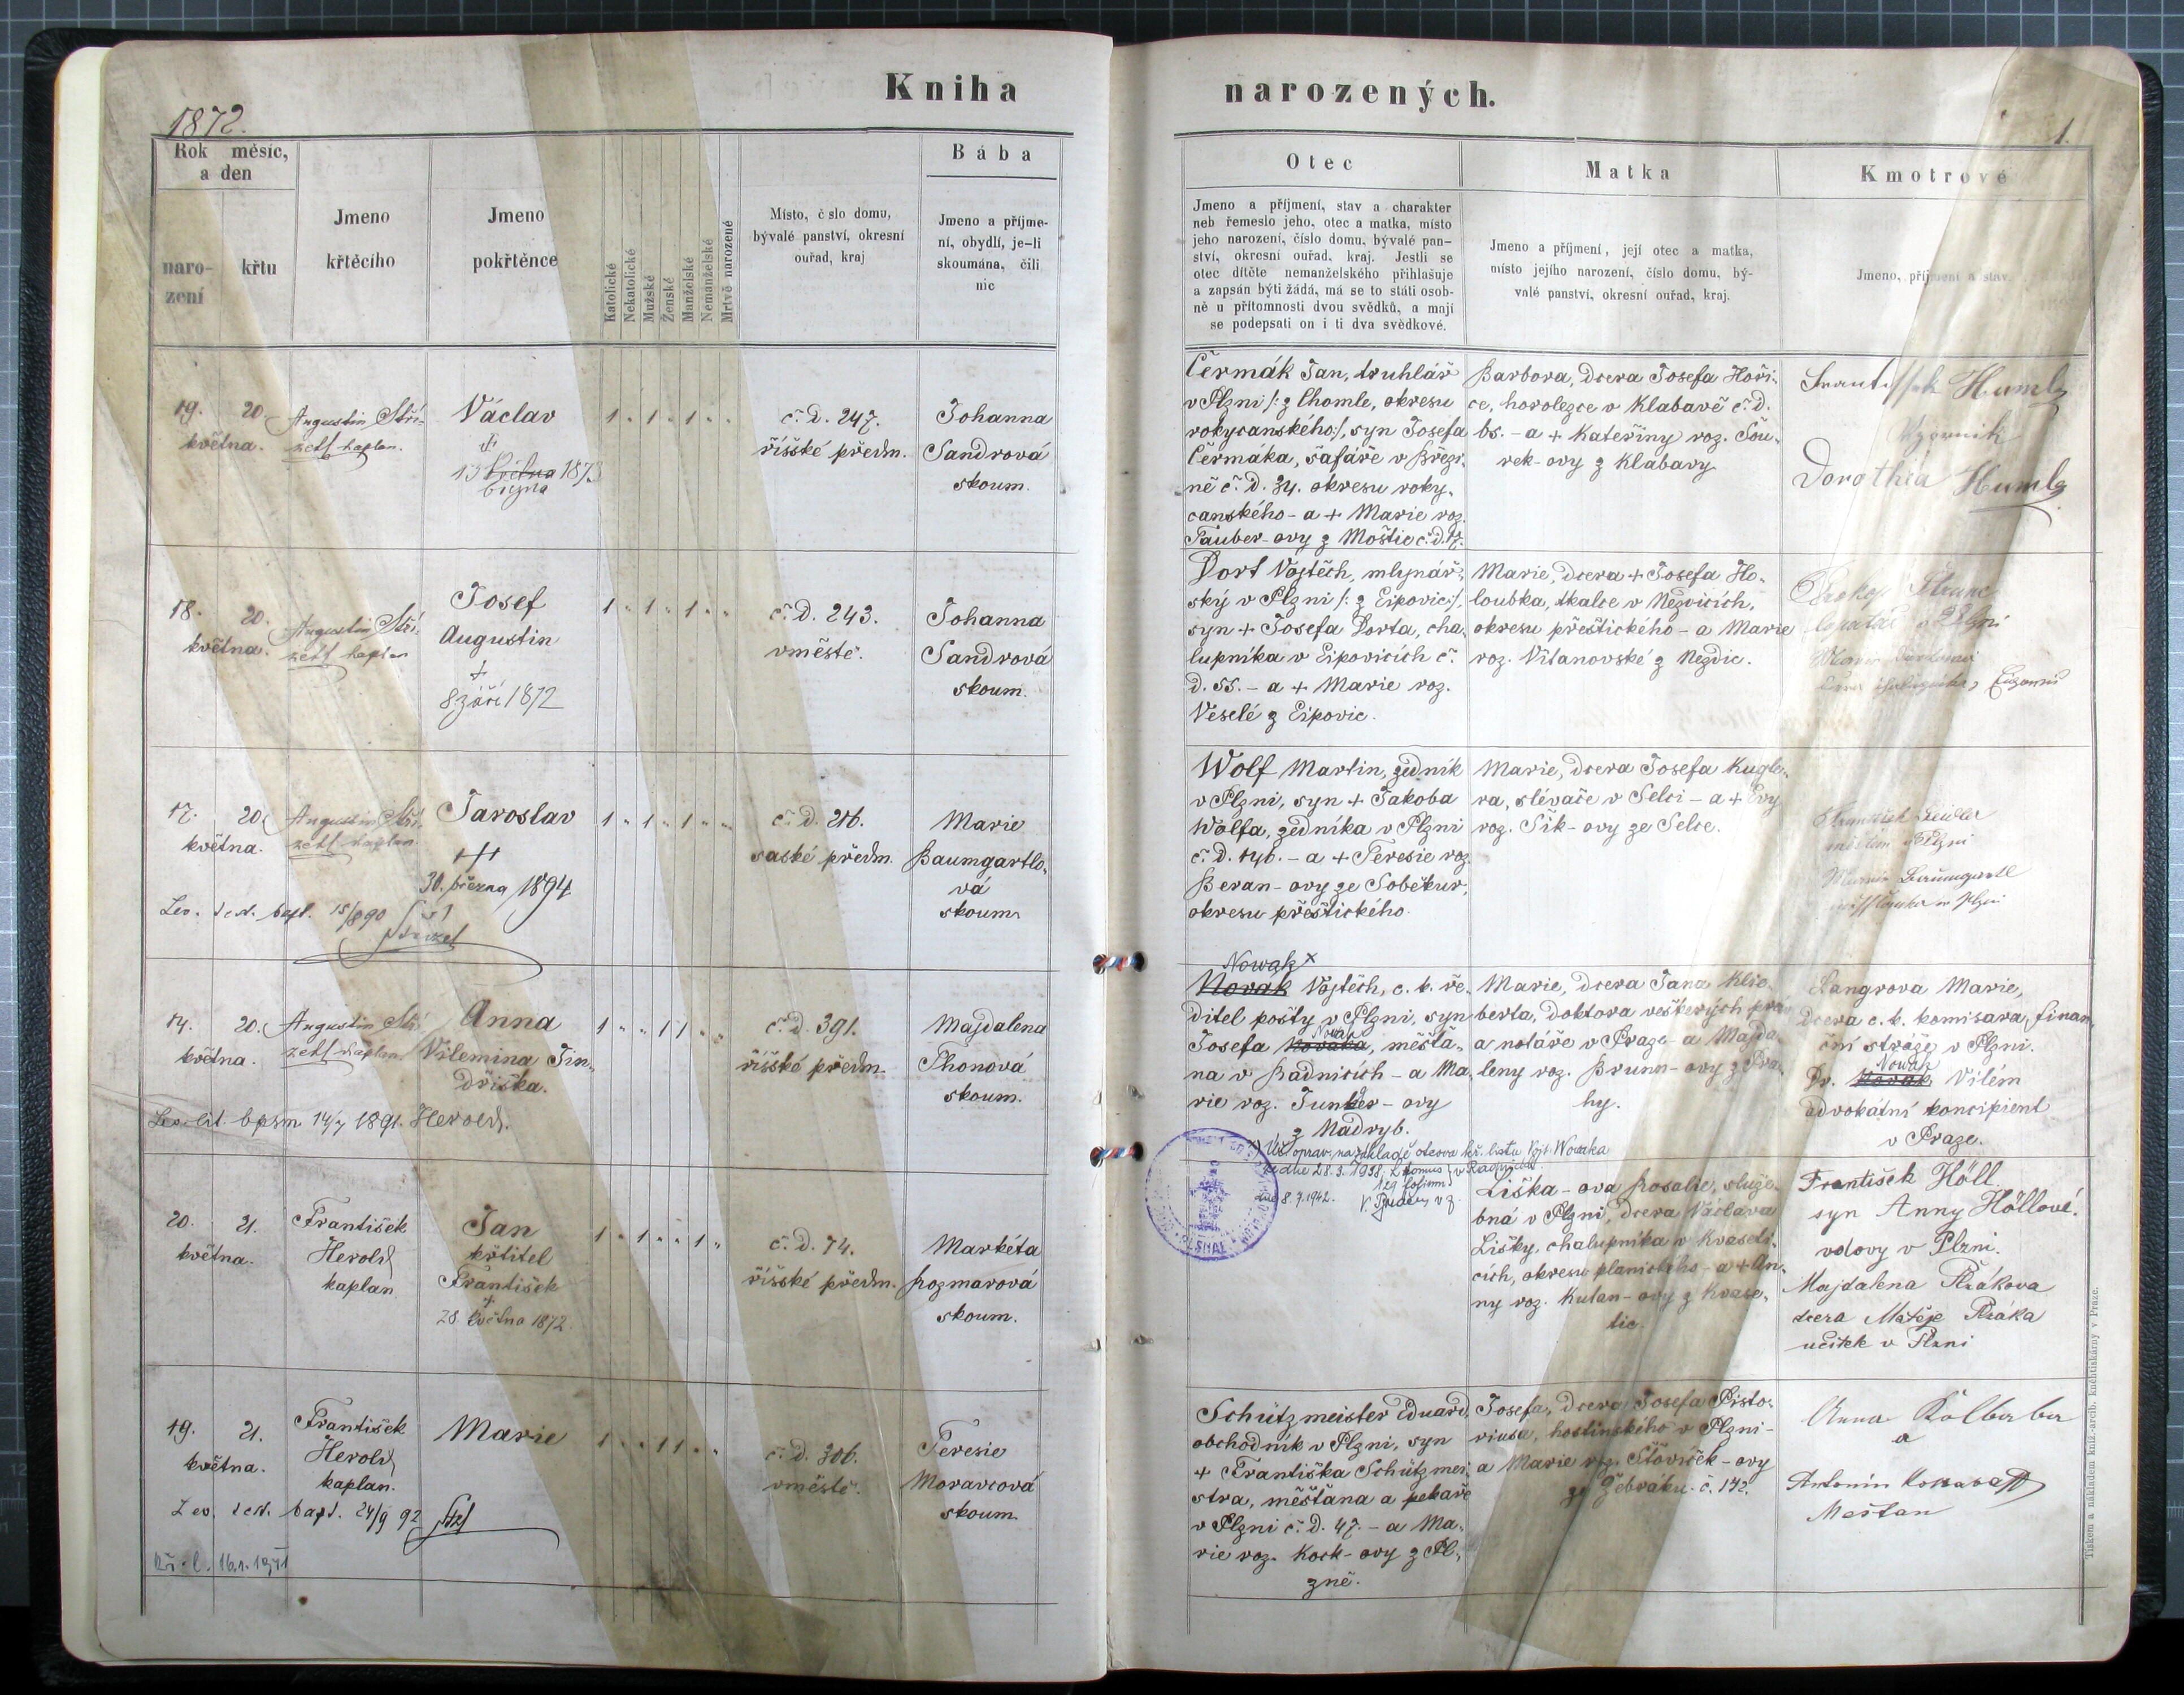 Kniha narozených.
1872.
1.
Rok měsíc,
a den
naro-
zení
křtu
Jmeno
křtěcího
Jmeno
pokřtěnce
Katolické
Nekatolické
Mužské
Ženské
Manželské
Nemanželské
Mrtvě narozené
Místo, č slo domu,
bývalé panství, okresní
ouřad, kraj
Bába
Jmeno a příjme-
ní, obydlí, je-li
skoumána, čili
nic
Otec
Jmeno a příjmení, stav a charakter
neb řemeslo jeho, otec a matka, místo
jeho narození, číslo domu, bývalé pan-
ství, okresní ouřad, kraj. Jestli se
otec dítěte nemanželského přihlašuje
a zapsán býti žádá, má se to státi osob-
ně u přítomnosti dvou svědků, a mají
se podepsati on i ti dva svědkové.
Matka
Jmeno a příjmení, její otec a matka,
místo jejího narození, číslo domu, bý-
valé panství, okresní ouřad, kraj.
Kmotrové
Jmeno, příjmení a stav.
19. 20.
května.
Augustin Stři-
zett kaplan.
Václav
+
13 května 1873
března
1 " 1 " 1 " "
č. d. 247.
říšské předm.
Johanna
Sandrová
skoum.
Čermák Jan, truhlář
v Plzni /: z Chomle, okresu
rokycanského:/, syn Josefa
Čermáka, šafáře v Březi-
ně č. d. 34. okresu roky-
canského - a + Marie roz.
Tauber-ovy z Moštic č. d. 17.
Barbora, dcera Josefa Hoři-
ce, horolezce v Klabavě č. d.
65. - a + Kateřiny roz. Sou-
rek-ovy z Klabavy.
Frantissek Humlz
Dorothea Humlz
18. 20.
května.
Augustin Stři-
zett kaplan
Josef
Augustin
+
8 září 1872
1 " 1 " 1 " "
č. d. 243.
v městě.
Johanna
Sandrová
skoum.
Dort Vojtěch, mlynář-
ský v Plzni /: z Eipovic:/,
syn + Josefa Dorta, cha-
lupníka v Eipovicích č.
d. 55. - a + Marie roz.
Veselé z Eipovic.
Marie, dcera + Josefa Ho-
loubka, tkalce v Nezdicích,
okresu přeštického - a Marie
roz. Vitanovské z Nezdic.
Prokop
v Plzni
17. 20.
května.
Augustin Stři-
zett kaplan.
Jaroslav
+++
30. března 1894
Lev. test. bapt. 15/8 90
1 " 1 " 1 " "
č. d. 216.
saské předm.
Marie
Baumgartlo-
vá
skoum.
Wolf Martin, zedník
v Plzni, syn + Jakoba
Wolfa, zedníka v Plzni
č. d. 146. - a + Teresie roz.
Beran-ovy ze Soběkur,
okresu přeštického.
Marie, dcera Josefa Kugle-
ra, slévače v Selci - a + Evy
roz. Sik-ovy ze Selce.
Frantisek Zeidler
v Plzni
Baumgartl
14. 20.
května.
Augustin Stři-
zett kaplan.
Anna
Vilemina Jin-
dřiška.
Lev. lit. bpsm 14/7 1891. Herold.
1 " " 1 1 " "
č. d. 391.
říšské předm.
Majdalena
Thonová
skoum.
Nowak x
Novák Vojtěch, c. k. ře-
ditel pošty v Plzni, syn
Josefa Nováka, měšťa-
na v Radnicích - a Ma-
rie roz. Junker-ovy
z Madryb.
Marie, dcera Jana Klie-
berta, doktora veškerých práv
a notáře v Praze - a Majda-
leny roz. Brunn-ovy z Pra-
hy.
Langrova Marie,
dcera c. k. komisara finan-
ční stráže v Plzni.
Nowak
Dr. Novák Vilém
advokátní koncipient
v Praze.
na základě otcova kř. listu Vojt. Nowaka
ze dne 28. 3. 1938,
dne 8. 7. 1942.
20. 21.
května.
František
Herold
kaplan
Jan
křtitel
František
+
28. května 1872.
1 " 1 " " 1 "
č. d. 74.
říšské předm.
Markéta
Rozmarová
skoum.
Liška-ova Rosalie, služe-
bná v Plzni, dcera Václava
Lišky, chalupníka v Kvaseti-
cích, okresu planického - a + An-
ny roz. Kulan-ovy z Kvase-
tic.
František Höll
syn Anny Höllové
vdovy v Plzni.
Majdalena Ptákova
dcera Matěje Ptáka
učitek v Plzni
19. 21.
května.
František
Herold
kaplan.
Marie
Lev. test. bapt. 24/9 92
Kř. l. 16.1. 1941
1 " " 1 1 " "
č. d. 306.
v městě.
Teresie
Moravcová
skoum.
Schützmeister Eduard,
obchodník v Plzni, syn
+ Františka Schützmei-
stra, měšťana a pekaře
v Plzni č. d. 47. - a Ma-
rie roz. Kock-ovy z Pl-
zně.
Josefa, dcera Josefa Pisto-
riusa, hostinského v Plzni -
a Marie roz. Šťovíček-ovy
ze Žebráku č. 142.
Anna Kolber
a
Antonín
Mešťan
Tiskem a nákladem kníž.-arcib. knihtiskárny v Praze.